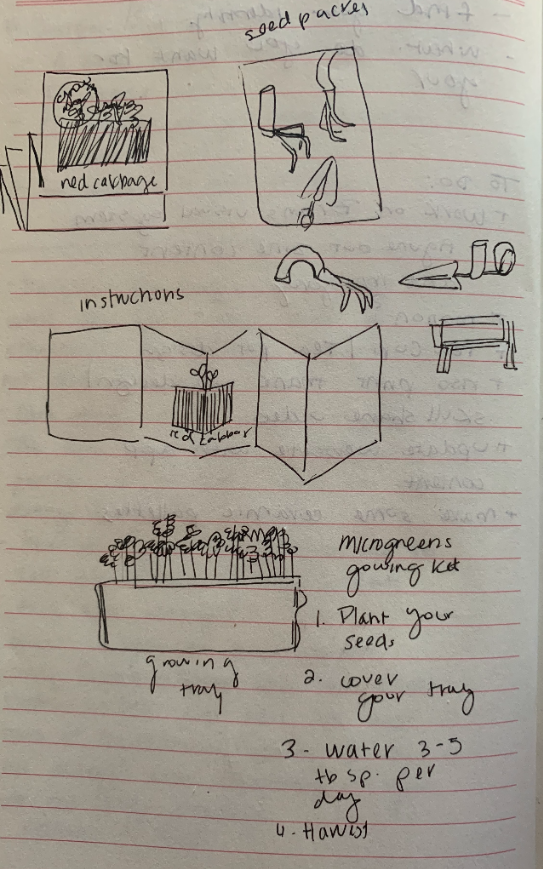 seed packet
red cabbage
instructions
red cabbage
microgreens
growing kit
growing
tray
1. Plant your
seeds
2. cover
your tray
3- water 3-5
tbsp. per
day
4. Harvest